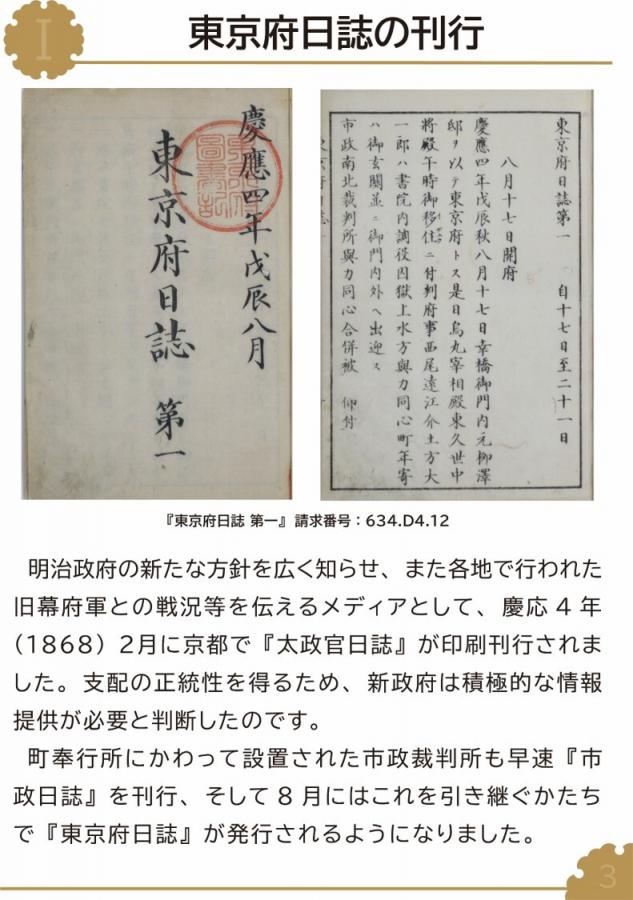 I
東京府日誌の刊行
慶應四年戊辰八月
東京府日誌 第一
東京府日誌第一 自十七日至二十一日
八月十七日開府
慶應四年戊辰秋八月十七日幸橋御門內元柳澤
邸ヲ以テ東京府トス是日烏丸宰相殿東久世中
將殿午時御移住ニ付判府事西尾遠江介土方大
一郎ハ書院內調役囚獄上水方與力同心町年寄
ハ御玄關並ニ御門內外ヘ出迎ス
市政南北裁判所與力同心合併被 仰付
『東京府日誌 第一』 請求番号：634.D4.12
明治政府の新たな方針を広く知らせ、また各地で行われた
旧幕府軍との戦況等を伝えるメディアとして、慶応 4 年
(1868) 2月に京都で『太政官日誌』が印刷刊行されま
した。支配の正統性を得るため、新政府は積極的な情報
提供が必要と判断したのです。
町奉行所にかわって設置された市政裁判所も早速『市
政日誌』を刊行、そして 8 月にはこれを引き継ぐかたち
で『東京府日誌』が発行されるようになりました。
3